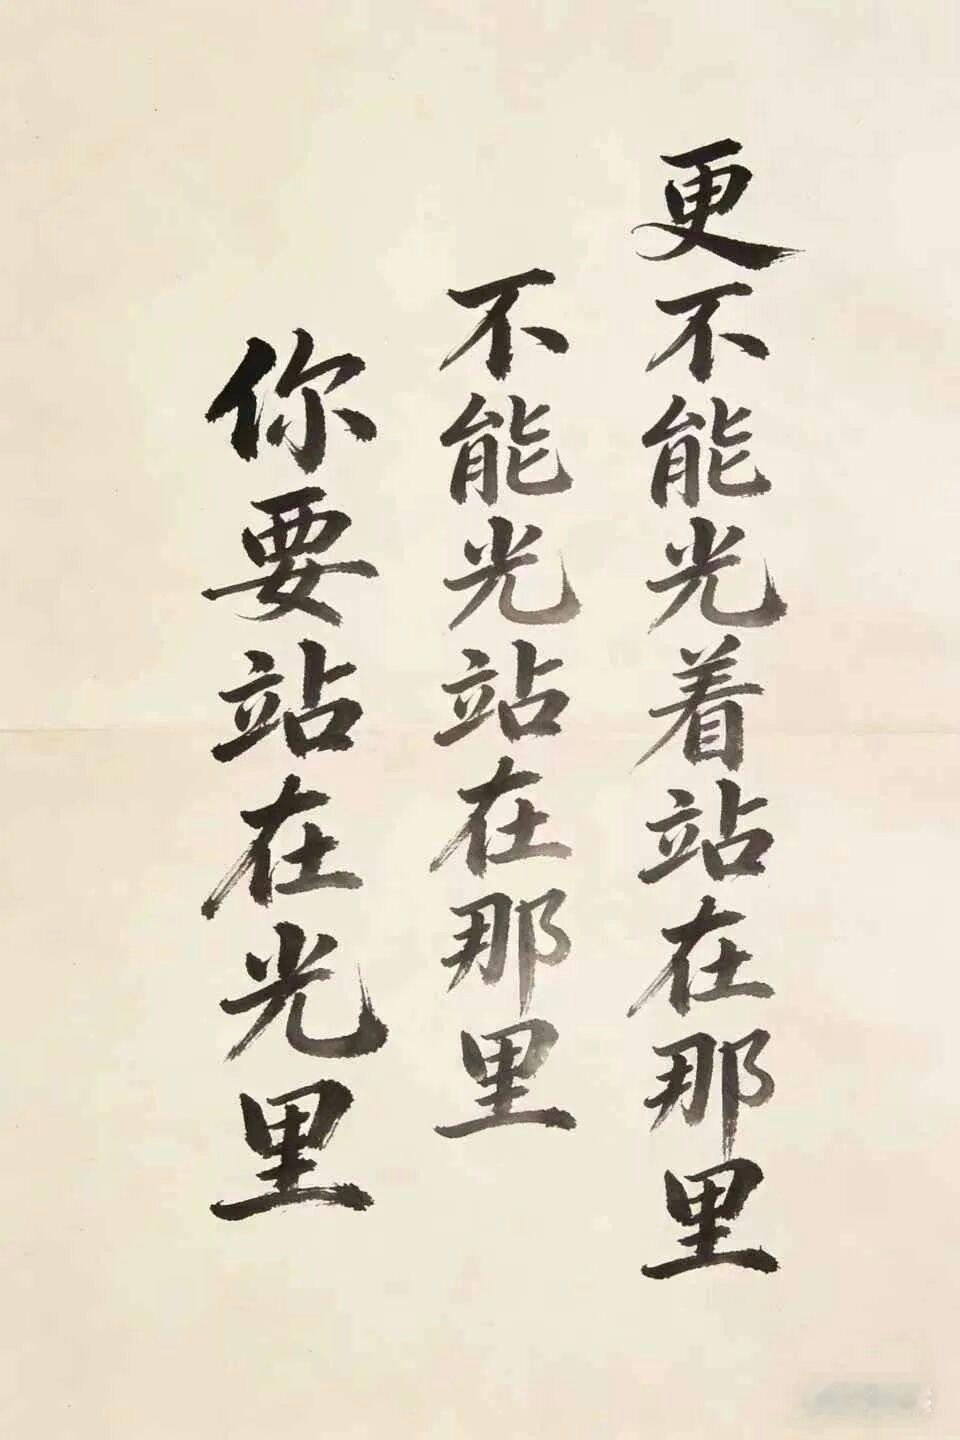 你要站在光里
不能光站在那里
更不能光着站在那里